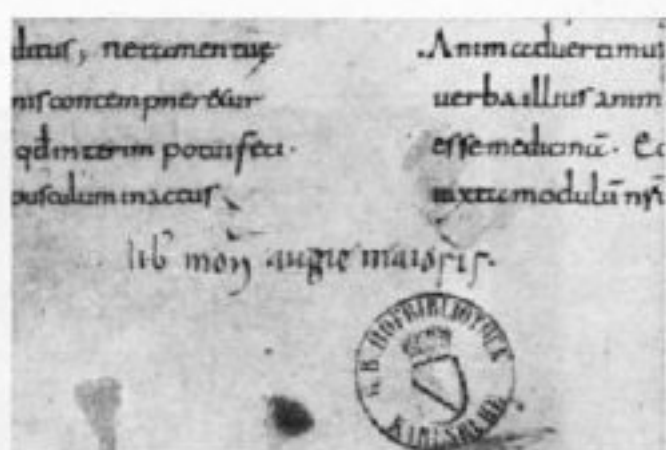 ditus, nec tamen tuę
nis contempneretur
qđ interim potui feci.
pusculum in actus
.Animaduertamus
uerba illius anim
esse medicinā. Ec
iuxta modulū nr̄i
lib̄ mon̄ augie maioris.
G. B. HOFBIBLIOTHEK
KARLSRUHE